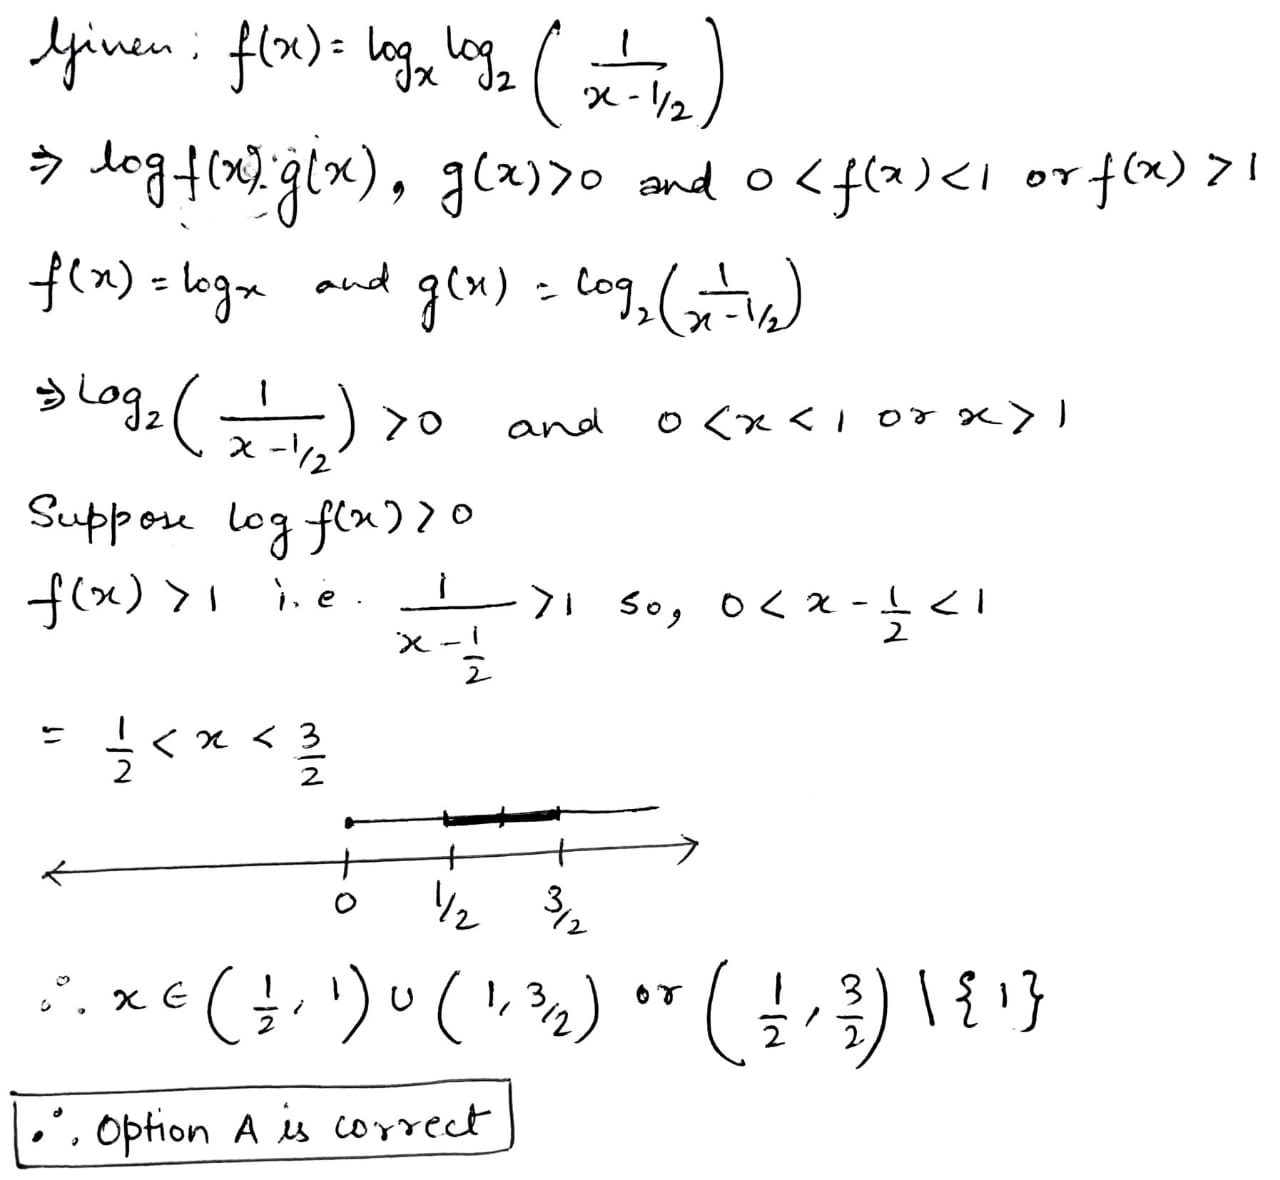 Given : f(x) = log_x log_2 ( 1 / (x - 1/2) )
⇒ log f(x) . g(x) , g(x) > 0 and 0 < f(x) < 1 or f(x) > 1
f(x) = log x and g(x) = log_2 ( 1 / (x - 1/2) )
⇒ Log_2 ( 1 / (x - 1/2) ) > 0 and 0 < x < 1 or x > 1
Suppose log f(x) > 0
f(x) > 1 i.e. 1 / (x - 1/2) > 1 so, 0 < x - 1/2 < 1
= 1/2 < x < 3/2
0 1/2 3/2
∴ x ∈ ( 1/2 , 1 ) ∪ ( 1, 3/2 ) or ( 1/2 , 3/2 ) \ { 1 }
∴ Option A is correct